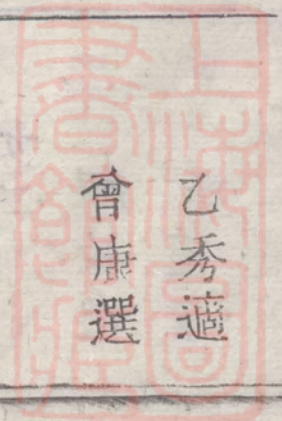 乙秀適
曾康選
上海圖
書館藏